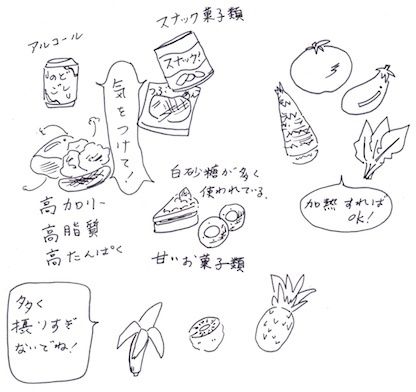 アルコール
のど
ごし
スナック菓子類
スナック!
気をつけて!
高カロリー
高脂質
高たんぱく
白砂糖が多く
使われている.
甘いお菓子類
加熱すれば
OK!
多く
摂りすぎ
ないでね!